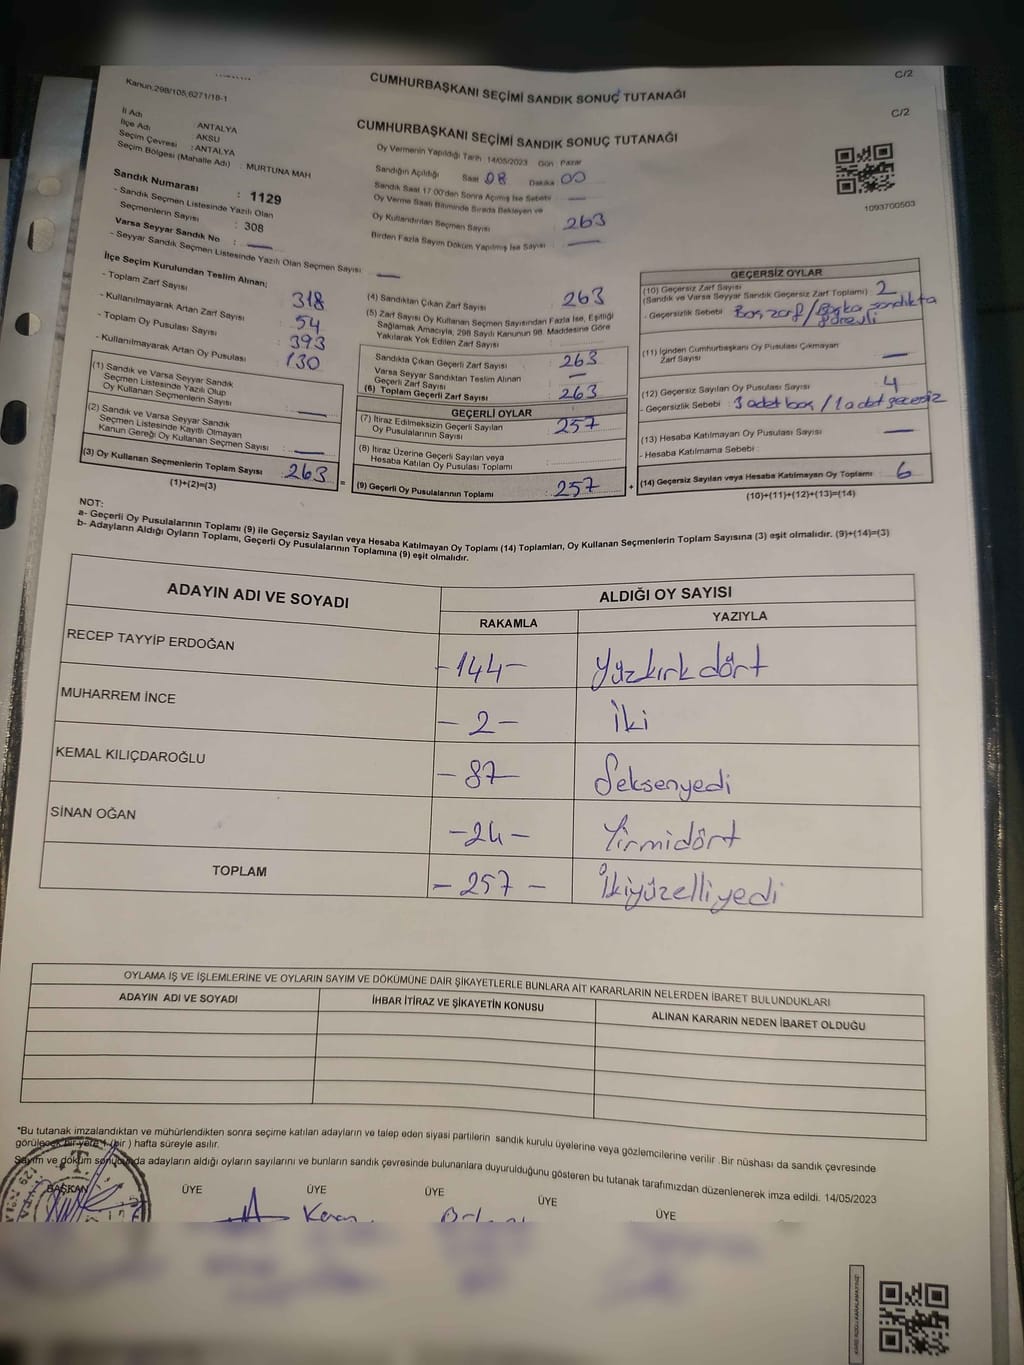 CUMHURBAŞKANI SEÇİMİ SANDIK SONUÇ TUTANAĞI
C/2
Kanun:298/105,6271/18-1
CUMHURBAŞKANI SEÇİMİ SANDIK SONUÇ TUTANAĞI
C/2
İl Adı : ANTALYA
İlçe Adı : AKSU
Seçim Çevresi : ANTALYA
Seçim Bölgesi (Mahalle Adı) : MURTUNA MAH
Sandık Numarası : 1129
- Sandık Seçmen Listesinde Yazılı Olan
Seçmenlerin Sayısı : 308
Varsa Seyyar Sandık No : —
- Seyyar Sandık Seçmen Listesinde Yazılı Olan Seçmen Sayısı —
Oy Vermenin Yapıldığı Tarih 14/05/2023 Gün Pazar
Sandığın Açıldığı Saat 08 Dakika 00
Sandık Saat 17:00'den Sonra Açılmış İse Sebebi —
Oy Verme Saati Bitiminde Sırada Bekleyen ve
Oy Kullandırılan Seçmen Sayısı 263
Birden Fazla Sayım Döküm Yapılmış İse Sayısı —
1093700503
İlçe Seçim Kurulundan Teslim Alınan;
- Toplam Zarf Sayısı 318
- Kullanılmayarak Artan Zarf Sayısı 54
- Toplam Oy Pusulası Sayısı 393
- Kullanılmayarak Artan Oy Pusulası 130
(1) Sandık ve Varsa Seyyar Sandık
Seçmen Listesinde Yazılı Olup
Oy Kullanan Seçmenlerin Sayısı : —
(2) Sandık ve Varsa Seyyar Sandık
Seçmen Listesinde Kayıtlı Olmayan
Kanun Gereği Oy Kullanan Seçmen Sayısı : —
(3) Oy Kullanan Seçmenlerin Toplam Sayısı 263
(1)+(2)=(3)
(4) Sandıktan Çıkan Zarf Sayısı 263
(5) Zarf Sayısı Oy Kullanan Seçmen Sayısından Fazla İse, Eşitliği
Sağlamak Amacıyla, 298 Sayılı Kanunun 98. Maddesine Göre
Yakılarak Yok Edilen Zarf Sayısı
Sandıkta Çıkan Geçerli Zarf Sayısı 263
Varsa Seyyar Sandıktan Teslim Alınan
Geçerli Zarf Sayısı —
(6) Toplam Geçerli Zarf Sayısı 263
GEÇERLİ OYLAR
(7) İtiraz Edilmeksizin Geçerli Sayılan
Oy Pusulalarının Sayısı 257
(8) İtiraz Üzerine Geçerli Sayılan veya
Hesaba Katılan Oy Pusulası Toplamı
= (9) Geçerli Oy Pusulalarının Toplamı : 257 +
GEÇERSİZ OYLAR
(10) Geçersiz Zarf Sayısı
(Sandık ve Varsa Seyyar Sandık Geçersiz Zarf Toplamı) : 2
- Geçersizlik Sebebi : Boş zarf / Başka sandıkta
görevli
(11) İçinden Cumhurbaşkanı Oy Pusulası Çıkmayan
Zarf Sayısı —
(12) Geçersiz Sayılan Oy Pusulası Sayısı 4
- Geçersizlik Sebebi : 3 adet boş / 1 adet geçersiz
(13) Hesaba Katılmayan Oy Pusulası Sayısı —
- Hesaba Katılmama Sebebi :
(14) Geçersiz Sayılan veya Hesaba Katılmayan Oy Toplamı : 6
(10)+(11)+(12)+(13)=(14)
NOT:
a- Geçerli Oy Pusulalarının Toplamı (9) ile Geçersiz Sayılan veya Hesaba Katılmayan Oy Toplamı (14) Toplamları, Oy Kullanan Seçmenlerin Toplam Sayısına (3) eşit olmalıdır. (9)+(14)=(3)
b- Adayların Aldığı Oyların Toplamı, Geçerli Oy Pusulalarının Toplamına (9) eşit olmalıdır.
ADAYIN ADI VE SOYADI
ALDIĞI OY SAYISI
RAKAMLA YAZIYLA
RECEP TAYYİP ERDOĞAN -144- Yüzkırkdört
MUHARREM İNCE -2- İki
KEMAL KILIÇDAROĞLU -87- Seksenyedi
SİNAN OĞAN -24- Yirmidört
TOPLAM -257- İkiyüzelliyedi
OYLAMA İŞ VE İŞLEMLERİNE VE OYLARIN SAYIM VE DÖKÜMÜNE DAİR ŞİKAYETLERLE BUNLARA AİT KARARLARIN NELERDEN İBARET BULUNDUKLARI
ADAYIN ADI VE SOYADI İHBAR İTİRAZ VE ŞİKAYETİN KONUSU ALINAN KARARIN NEDEN İBARET OLDUĞU
*Bu tutanak imzalandıktan ve mühürlendikten sonra seçime katılan adayların ve talep eden siyasi partilerin sandık kurulu üyelerine veya gözlemcilerine verilir. Bir nüshası da sandık çevresinde
görülecek bir yere 1 (bir) hafta süreyle asılır.
Sayım ve döküm sonucunda adayların aldığı oyların sayılarını ve bunların sandık çevresinde bulunanlara duyurulduğunu gösteren bu tutanak tarafımızdan düzenlenerek imza edildi. 14/05/2023
BAŞKAN ÜYE ÜYE ÜYE ÜYE ÜYE